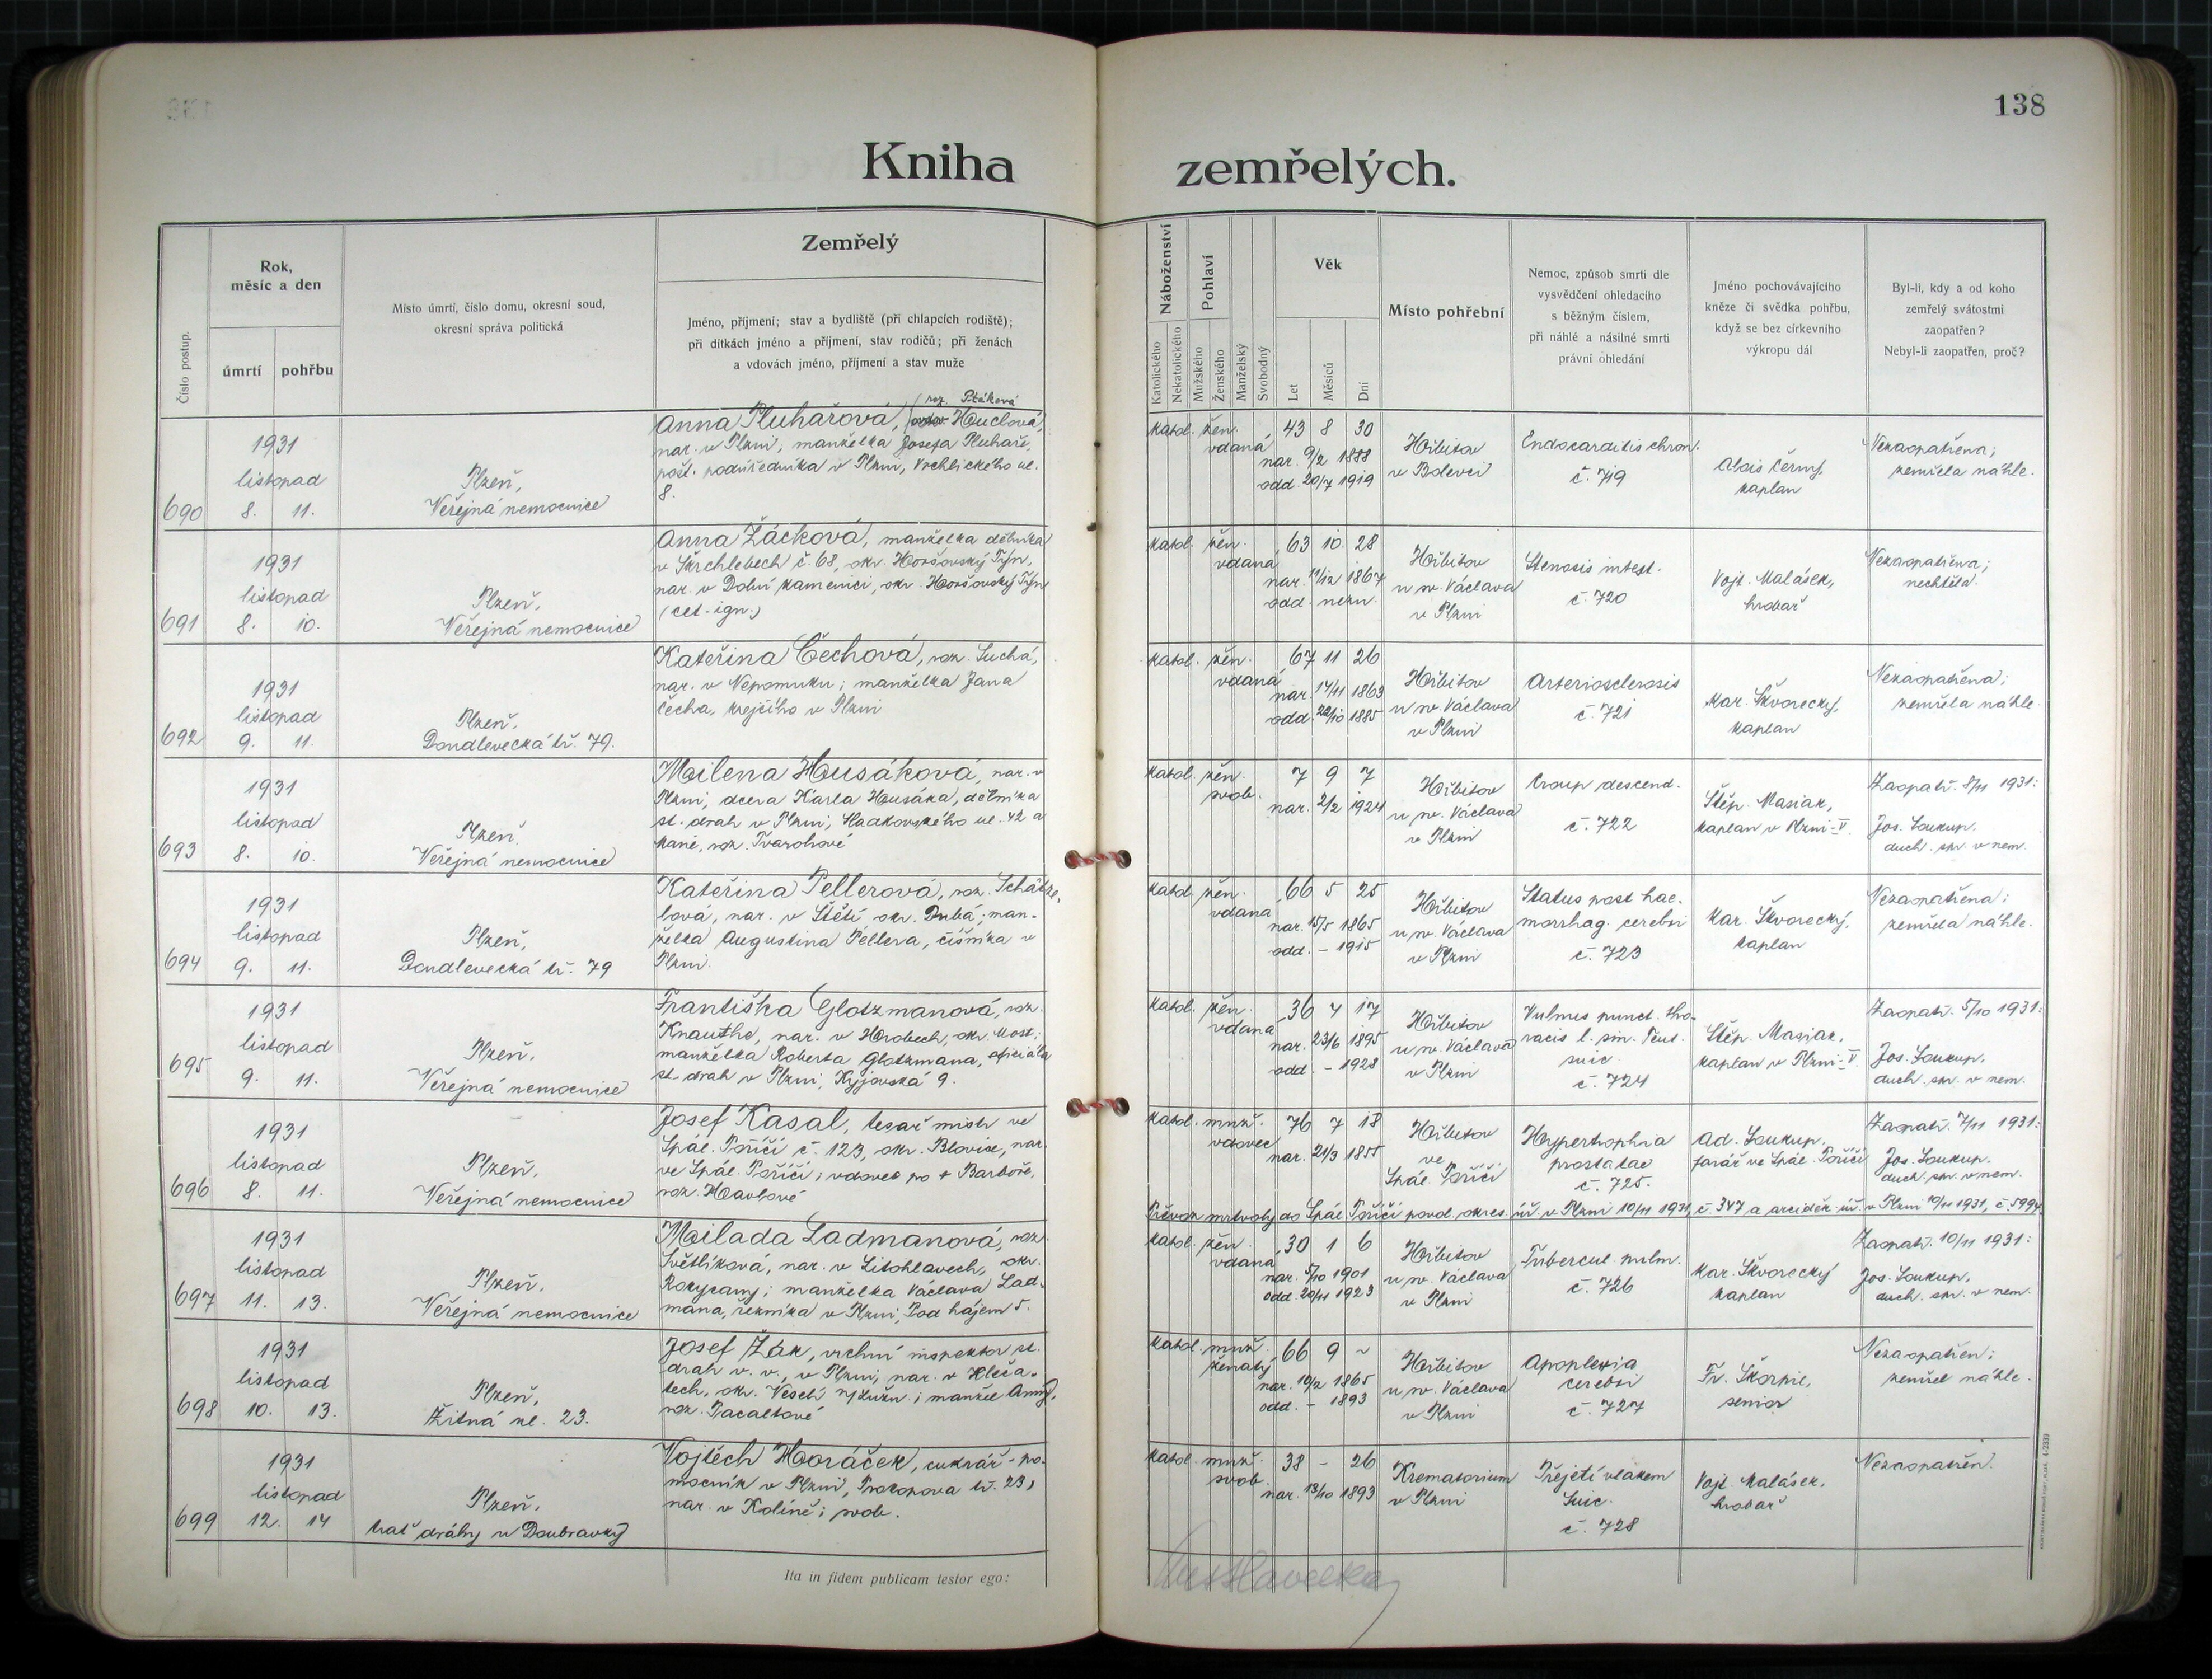 138
Kniha zemřelých.
Číslo postup.
Rok,
měsíc a den
úmrtí
pohřbu
Místo úmrtí, číslo domu, okresní soud,
okresní správa politická
Zemřelý
Jméno, příjmení; stav a bydliště (při chlapcích rodiště);
při dítkách jméno a příjmení, stav rodičů; při ženách
a vdovách jméno, příjmení a stav muže
Náboženství
Katolického
Nekatolického
Pohlaví
Mužského
Ženského
Manželský
Svobodný
Věk
Let
Měsíců
Dní
Místo pohřební
Nemoc, způsob smrti dle
vysvědčení ohledacího
s běžným číslem,
při náhlé a násilné smrti
právní ohledání
Jméno pochovávajícího
kněze či svědka pohřbu,
když se bez církevního
výkropu dál
Byl-li, kdy a od koho
zemřelý svátostmi
zaopatřen?
Nebyl-li zaopatřen, proč?
690
1931
listopad
8. 11.
Plzeň,
Veřejná nemocnice
roz. Ptáková
Anna Pluhařová, Houclová,
nar. v Plzni, manželka Josefa Pluhaře,
pošt. podúředníka v Plzni, Vrchlického ul.
8.
katol. žen. 43 8 30
vdaná
nar. 9/2 1888
odd. 20/7 1919
Hřbitov
v Bolevci
Endocarditis chron.
č. 719
Alois Černý,
kaplan
Nezaopatřena;
zemřela náhle.
691
1931
listopad
8. 10.
Plzeň,
Veřejná nemocnice
Anna Žáčková, manželka dělníka
v Škrchlebech č. 68, okr. Horšovský Týn,
nar. v Dolní Kamenici, okr. Horšovský Týn
(cet. ign.)
katol. žen. 63 10 28
vdaná
nar. 11/12 1867
odd. nezn.
Hřbitov
u sv. Václava
v Plzni
Stenosis intest.
č. 720
Vojt. Malásek,
hrobař
Nezaopatřena;
nechtěla.
692
1931
listopad
9. 11.
Plzeň,
Doudlevecká tř. 79.
Kateřina Čechová, roz. Suchá,
nar. v Nepomuku; manželka Jana
Čecha, krejčího v Plzni
katol. žen. 67 11 26
vdaná
nar. 14/11 1863
odd. 22/10 1885
Hřbitov
u sv. Václava
v Plzni
Arteriosclerosis
č. 721
Kar. Škvorecký,
kaplan
Nezaopatřena;
zemřela náhle.
693
1931
listopad
8. 10.
Plzeň,
Veřejná nemocnice
Milena Husáková, nar. v
Plzni, dcera Karla Husáka, dělníka
st. drah v Plzni, Sladkovského ul. 42 a
roz. Tvarohové
katol. žen. 7 9 7
svob.
nar. 2/2 1924
Hřbitov
u sv. Václava
v Plzni
Croup descend.
č. 722
Štěp. Masiar,
kaplan v Plzni-V.
Zaopatř. 8/11 1931:
Jos. Soukup,
duch. spr. v nem.
694
1931
listopad
9. 11.
Plzeň,
Doudlevecká tř. 79
Kateřina Pellerová, roz. Schätze-
lová, nar. v Štětí okr. Dubá; man-
želka Augustina Pellera, číšníka v
Plzni.
katol. žen. 66 5 25
vdaná
nar. 15/5 1865
odd. - 1915
Hřbitov
u sv. Václava
v Plzni
Status post hae-
morrhag. cerebri
č. 723
Kar. Škvorecký,
kaplan
Nezaopatřena;
zemřela náhle.
695
1931
listopad
9. 11.
Plzeň,
Veřejná nemocnice
Františka Glotzmanová, roz.
Knauthe, nar. v Hrobech, okr. Most;
manželka Roberta Glotzmana, oficiála
st. drah v Plzni, Kyjovská 9.
katol. žen. 36 4 17
vdaná
nar. 23/6 1895
odd. - 1928
Hřbitov
u sv. Václava
v Plzni
Vulnus punct. tho-
racis l. sin. Tent.
suic.
č. 724
Štěp. Masiar,
kaplan v Plzni-V.
Zaopatř. 5/10 1931:
Jos. Soukup,
duch. spr. v nem.
696
1931
listopad
8. 11.
Plzeň,
Veřejná nemocnice
Josef Kasal, tesař. mistr ve
Spál. Poříčí č. 123, okr. Blovice, nar.
ve Spál. Poříčí; vdovec po † Barboře,
roz. Havlové
katol. muž. 76 7 18
vdovec
nar. 21/3 1855
Hřbitov
ve
Spál. Poříčí
Hypertrophia
prostatae
č. 725.
Ad. Soukup,
farář ve Spál. Poříčí
Zaopatř. 7/11 1931:
Jos. Soukup,
duch. spr. v nem.
Převoz mrtvoly do Spál. Poříčí povol. okres. úř. v Plzni 10/11 1931, č. 347 a arciděk. úř. v Plzni 10/11 1931, č. 5994.
697
1931
listopad
11. 13.
Plzeň,
Veřejná nemocnice
Milada Ladmanová, roz.
Světlíková, nar. v Litohlavech, okr.
Rokycany; manželka Václava Lad-
mana, řezníka v Plzni, Pod hájem 5.
katol. žen. 30 1 6
vdaná
nar. 5/10 1901
odd. 20/11 1923
Hřbitov
u sv. Václava
v Plzni
Tubercul. pulm.
č. 726
Kar. Škvorecký
kaplan
Zaopatř. 10/11 1931:
Jos. Soukup,
duch. spr. v nem.
698
1931
listopad
10. 13.
Plzeň,
Žitná ul. 23.
Josef Žák, vrchní inspektor st.
drah v. v., v Plzni, nar. v Kleča-
tech, okr. Veselí n/Lužn.; manžel Anny,
roz. Pacaltové
katol. muž. 66 9 ~
ženatý
nar. 10/2 1865
odd. - 1893
Hřbitov
u sv. Václava
v Plzni
Apoplexia
cerebri
č. 727
Fr. Škorpil,
senior
Nezaopatřen;
zemřel náhle.
699
1931
listopad
12. 14
Plzeň,
trať dráhy u Doubravky
Vojtěch Horáček, cukrář-po-
mocník v Plzni, Prokopova tř. 23,
nar. v Kolíně; svob.
katol. muž. 38 - 26
svob.
nar. 13/10 1893
Krematorium
v Plzni
Přejetí vlakem
Suic.
č. 728
Vojt. Malásek,
hrobař
Nezaopatřen.
Ita in fidem publicam testor ego: